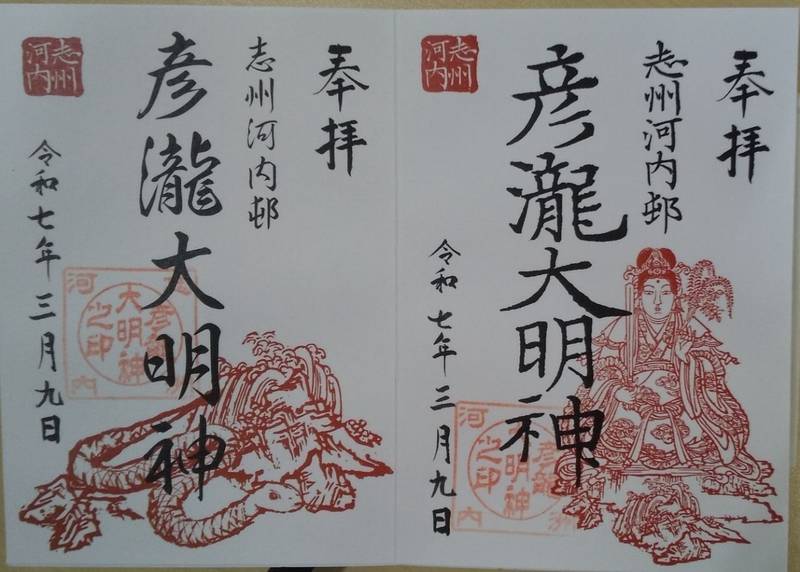 奉拝
志州河内邨
彦瀧大明神
令和七年三月九日
志州
河内
彦瀧
大明神
之印
河
内
奉拝
志州河内邨
彦瀧大明神
令和七年三月九日
志州
河内
明神
之印
河
内